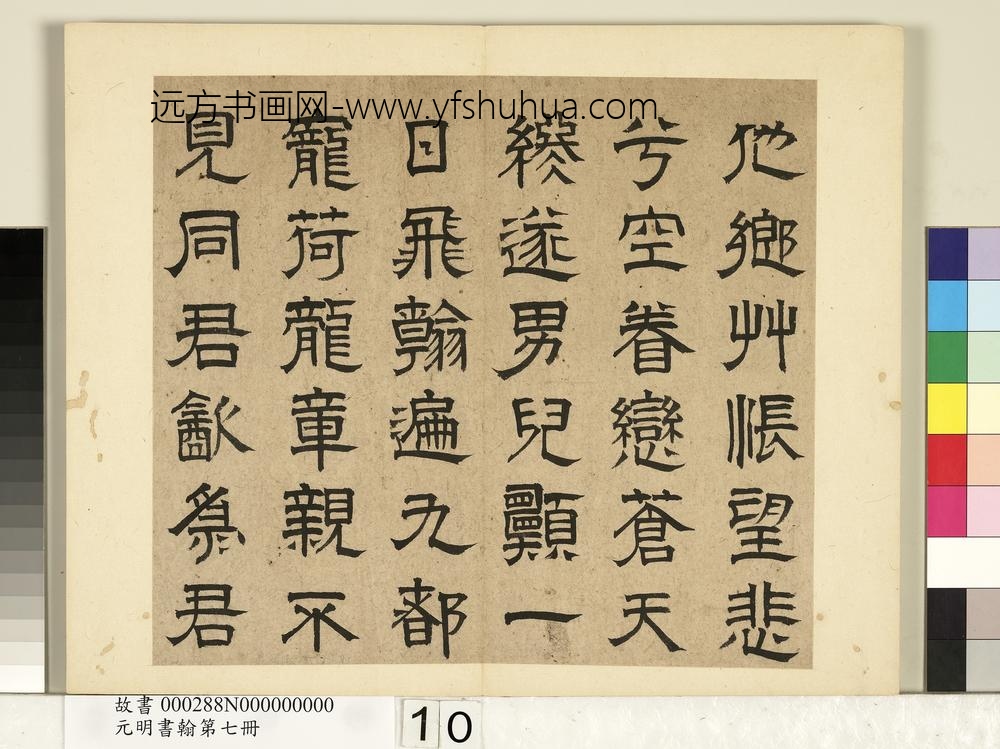 远方书画网-www.yfshuhua.com
他鄉艸悵望悲
兮空眷戀蒼天
遂男兒願一
日飛翰遍九都
寵荷龍章親不
見同君㱃為君
故書 000288N000000000
元明書翰第七冊
10